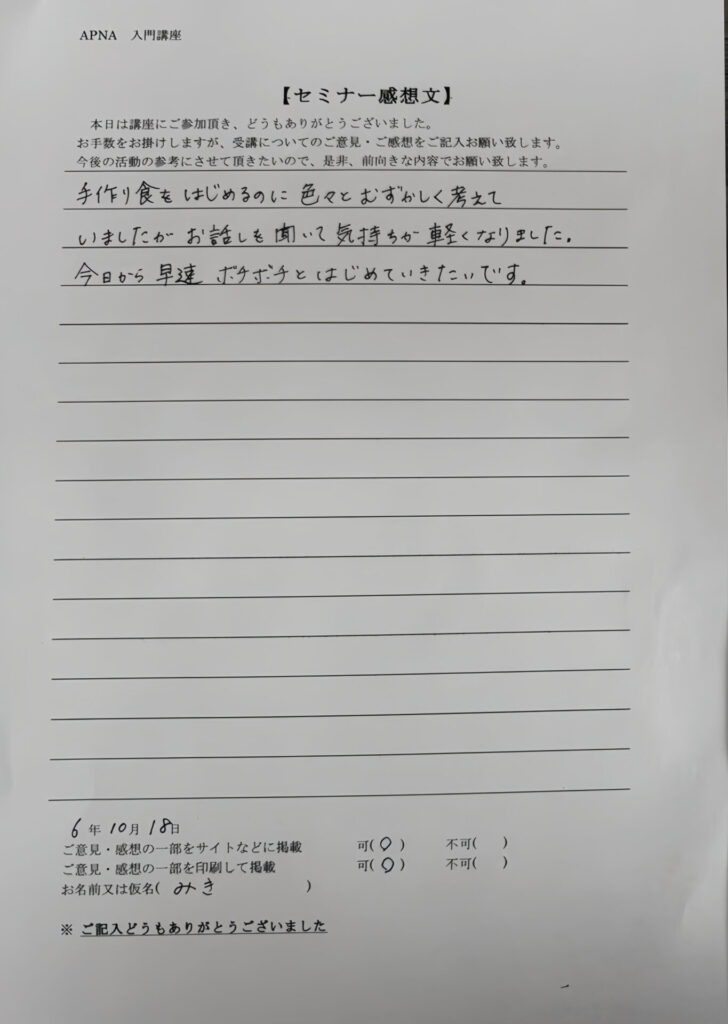 APNA 入門講座
【セミナー感想文】
本日は講座にご参加頂き、どうもありがとうございました。
お手数をお掛けしますが、受講についてのご意見・ご感想をご記入お願い致します。
今後の活動の参考にさせて頂きたいので、是非、前向きな内容でお願い致します。
手作り食をはじめるのに色々とむずかしく考えて
いましたがお話しを聞いて気持ちが軽くなりました。
今日から早速ボチボチとはじめていきたいです。
6年10月18日
ご意見・感想の一部をサイトなどに掲載 可(○) 不可( )
ご意見・感想の一部を印刷して掲載 可(○) 不可( )
お名前又は仮名( みき )
※ ご記入どうもありがとうございました